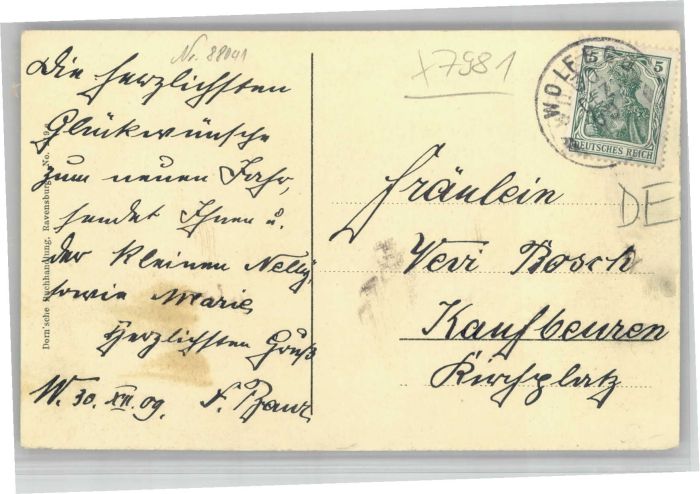 Nr. 88041
Die herzlichsten
Glückwünsche
zum neuen Jahr,
sendet Ihnen u.
der kleinen Nelly,
sowie Marie
Herzlichsten Gruß
W. 30. XII. 09. F.
Dorn'sche Buchhandlung, Ravensburg. No.
x7981
WOLFEGG
30
DEZ
5
DEUTSCHES REICH
DE
Fräulein
Vevi Bosch
Kaufbeuren
Kirchplatz